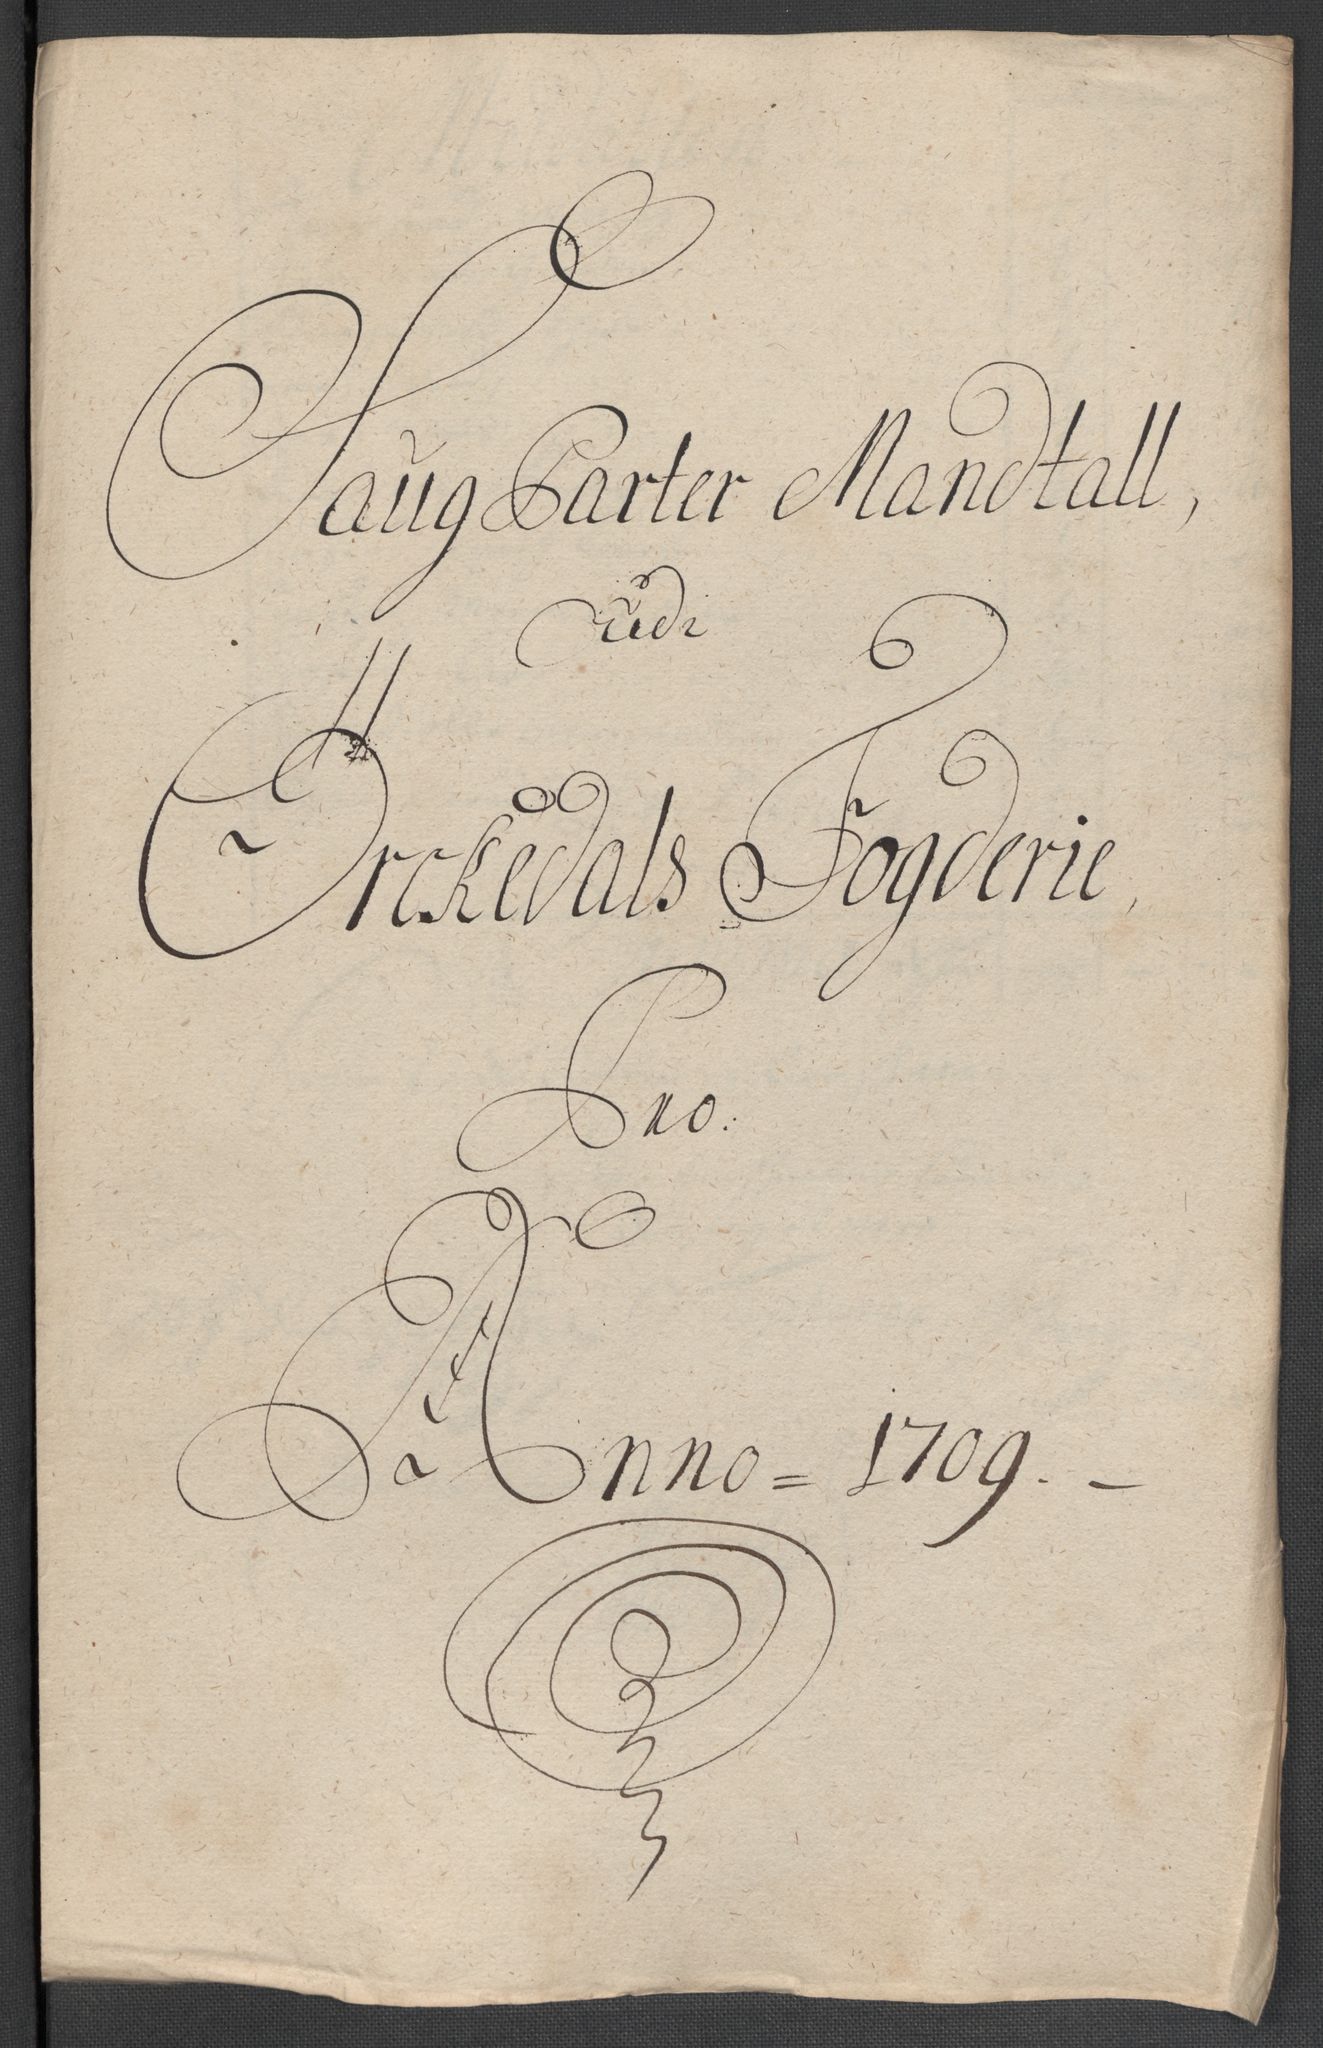 Saug Parter Mandtall,
udi
Orckedals Fogderie,
Pro.
Anno = 1709. -